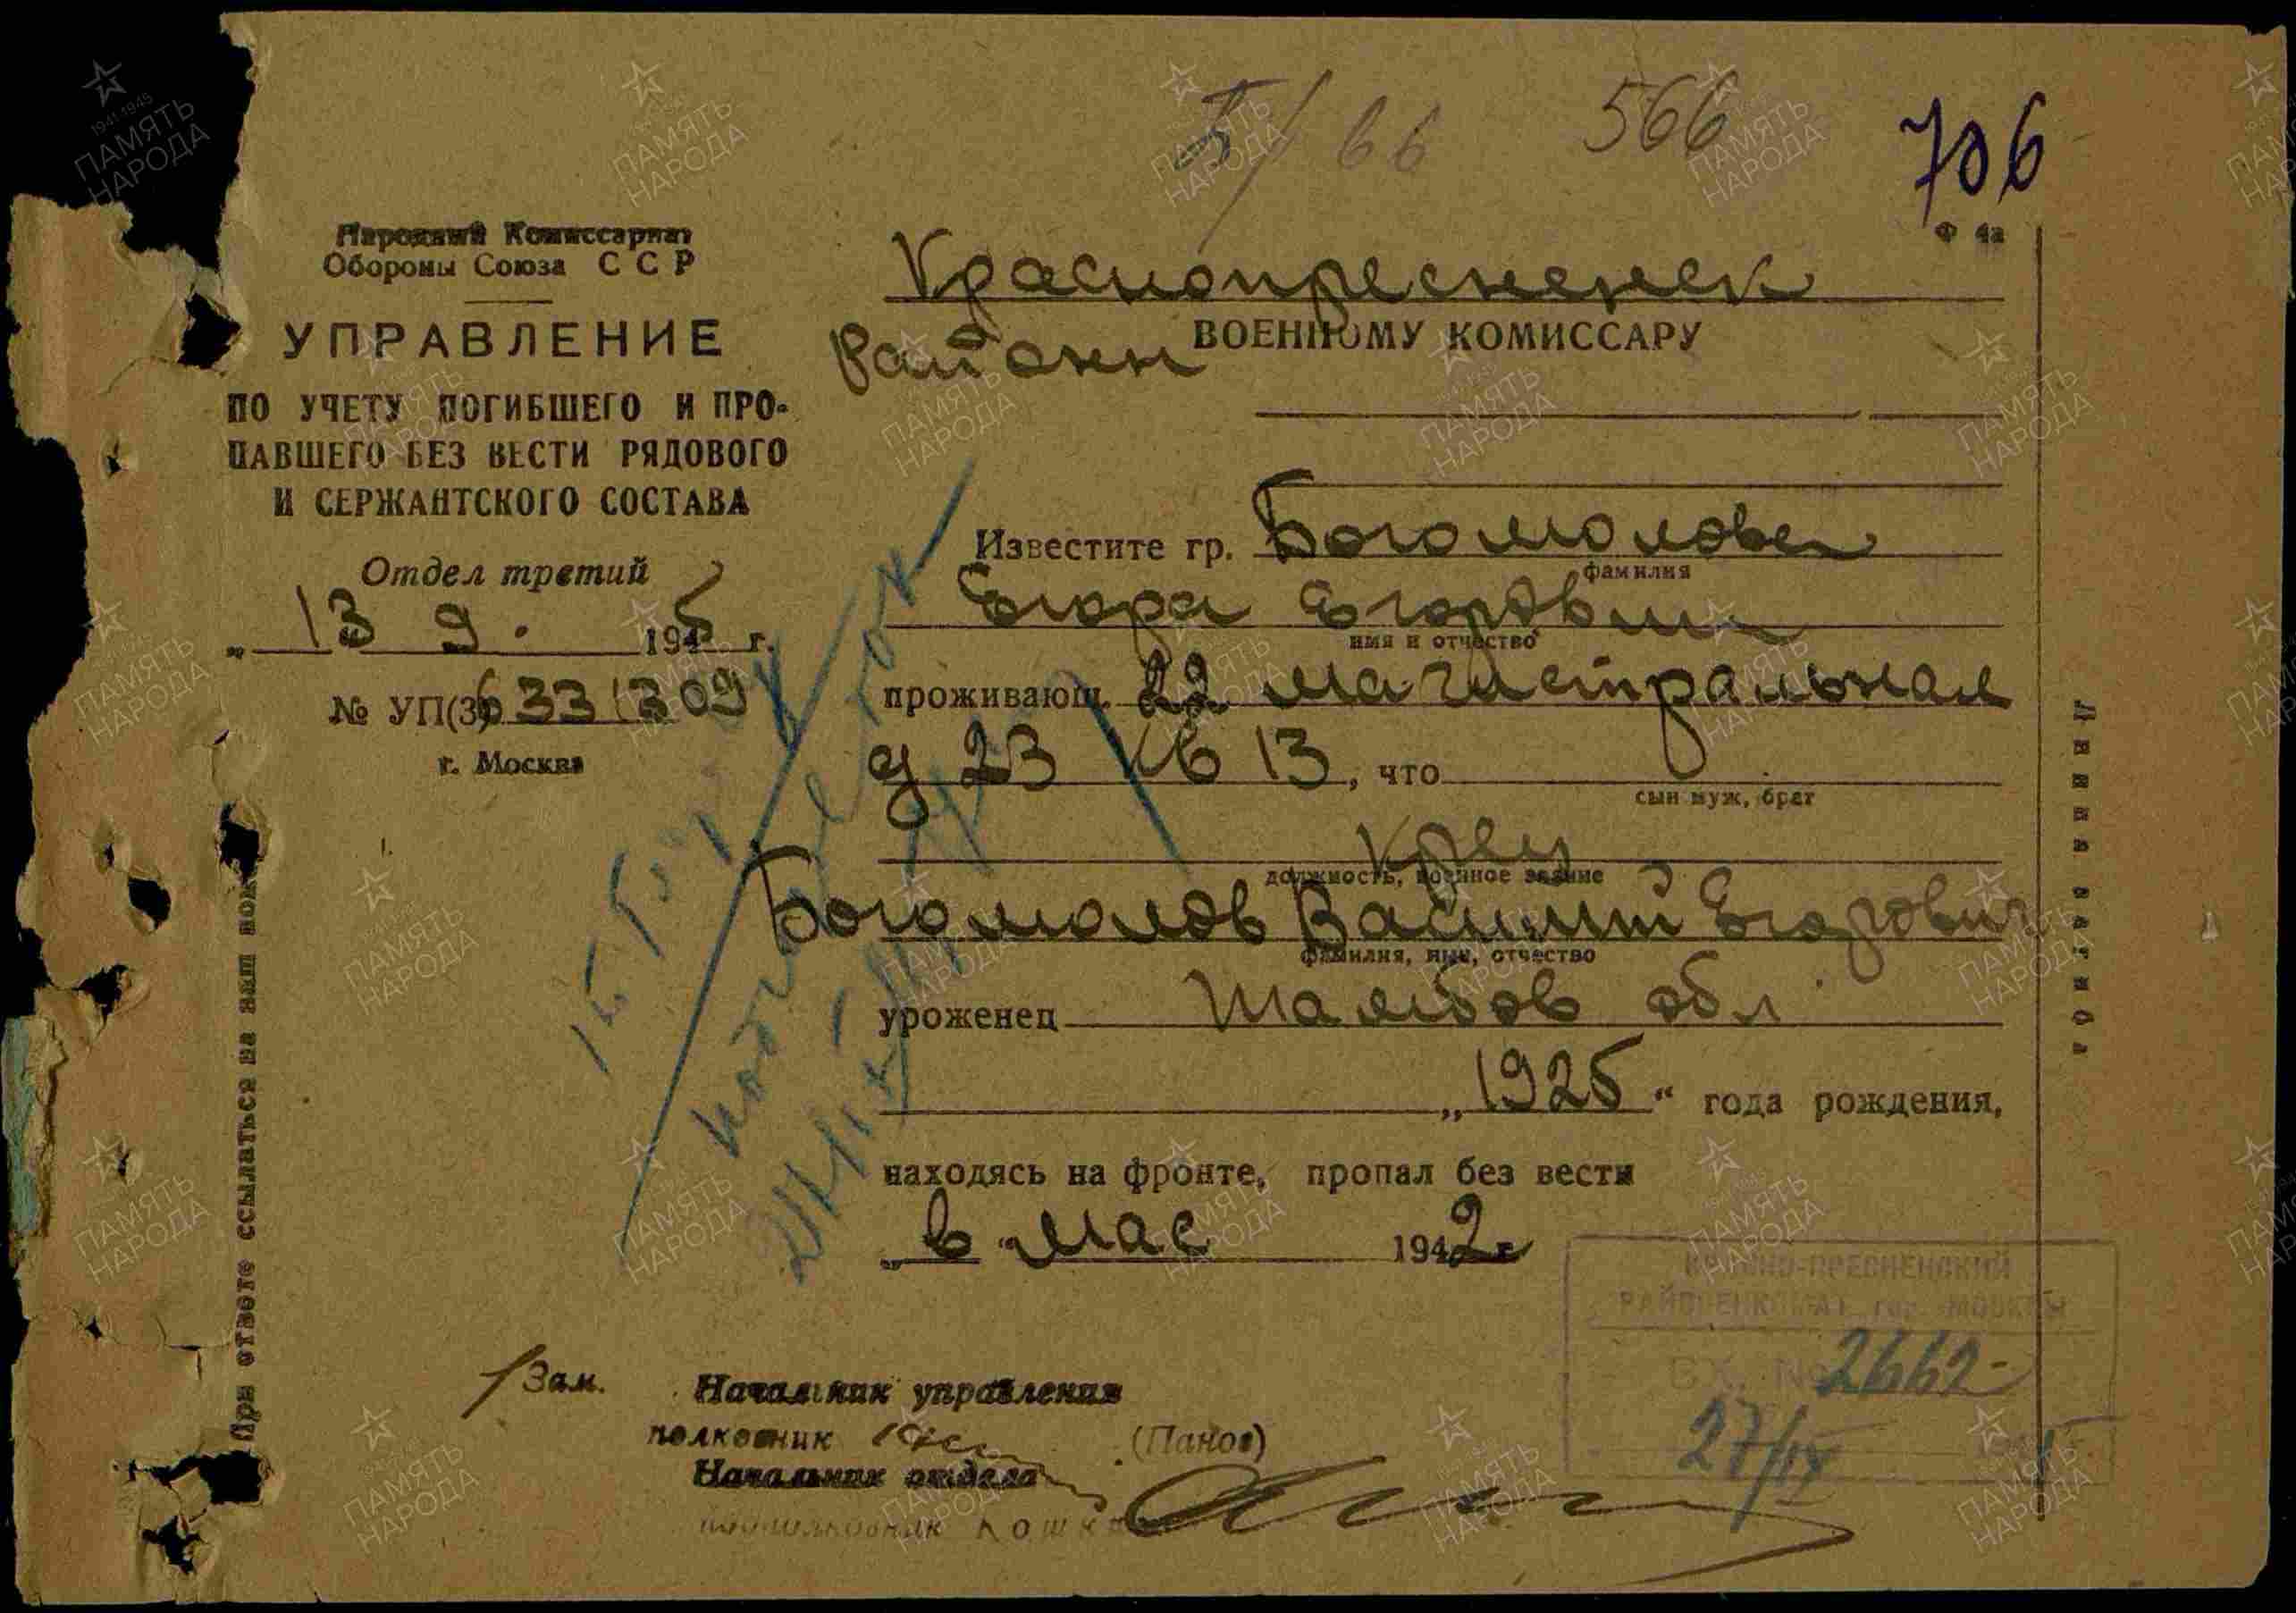 566
706
Ф 4а
Народный Комиссариат
Обороны Союза ССР
УПРАВЛЕНИЕ
ПО УЧЕТУ ПОГИБШЕГО И ПРО-
ПАВШЕГО БЕЗ ВЕСТИ РЯДОВОГО
И СЕРЖАНТСКОГО СОСТАВА
Отдел третий
„ 13 9. 1945 г.
№ УП(3)
г. Москва
При ответе ссылаться на наш
Краснопресненск
Районн ВОЕННОМУ КОМИССАРУ
Известите гр. Богомолова
фамилия
Егора Егоровича
имя и отчество
проживающ. 22 магистральная
д 23 кв 13, что
сын муж, брат
кр-ец
должность, военное звание
Богомолов Василий Егорович
фамилия, имя, отчество
уроженец Тамбов обл
„1925“ года рождения,
находясь на фронте, пропал без вести
„в мае 1942 г
Линия загиба
Зам. Начальник управления
полковник (Панов)
Начальник отдела
подполковник
КРАСНО-ПРЕСНЕНСКИЙ
РАЙВОЕНКОМАТ гор. МОСКВЫ
ВХ. № 2662
27/IX
1941-1945
ПАМЯТЬ
НАРОДА